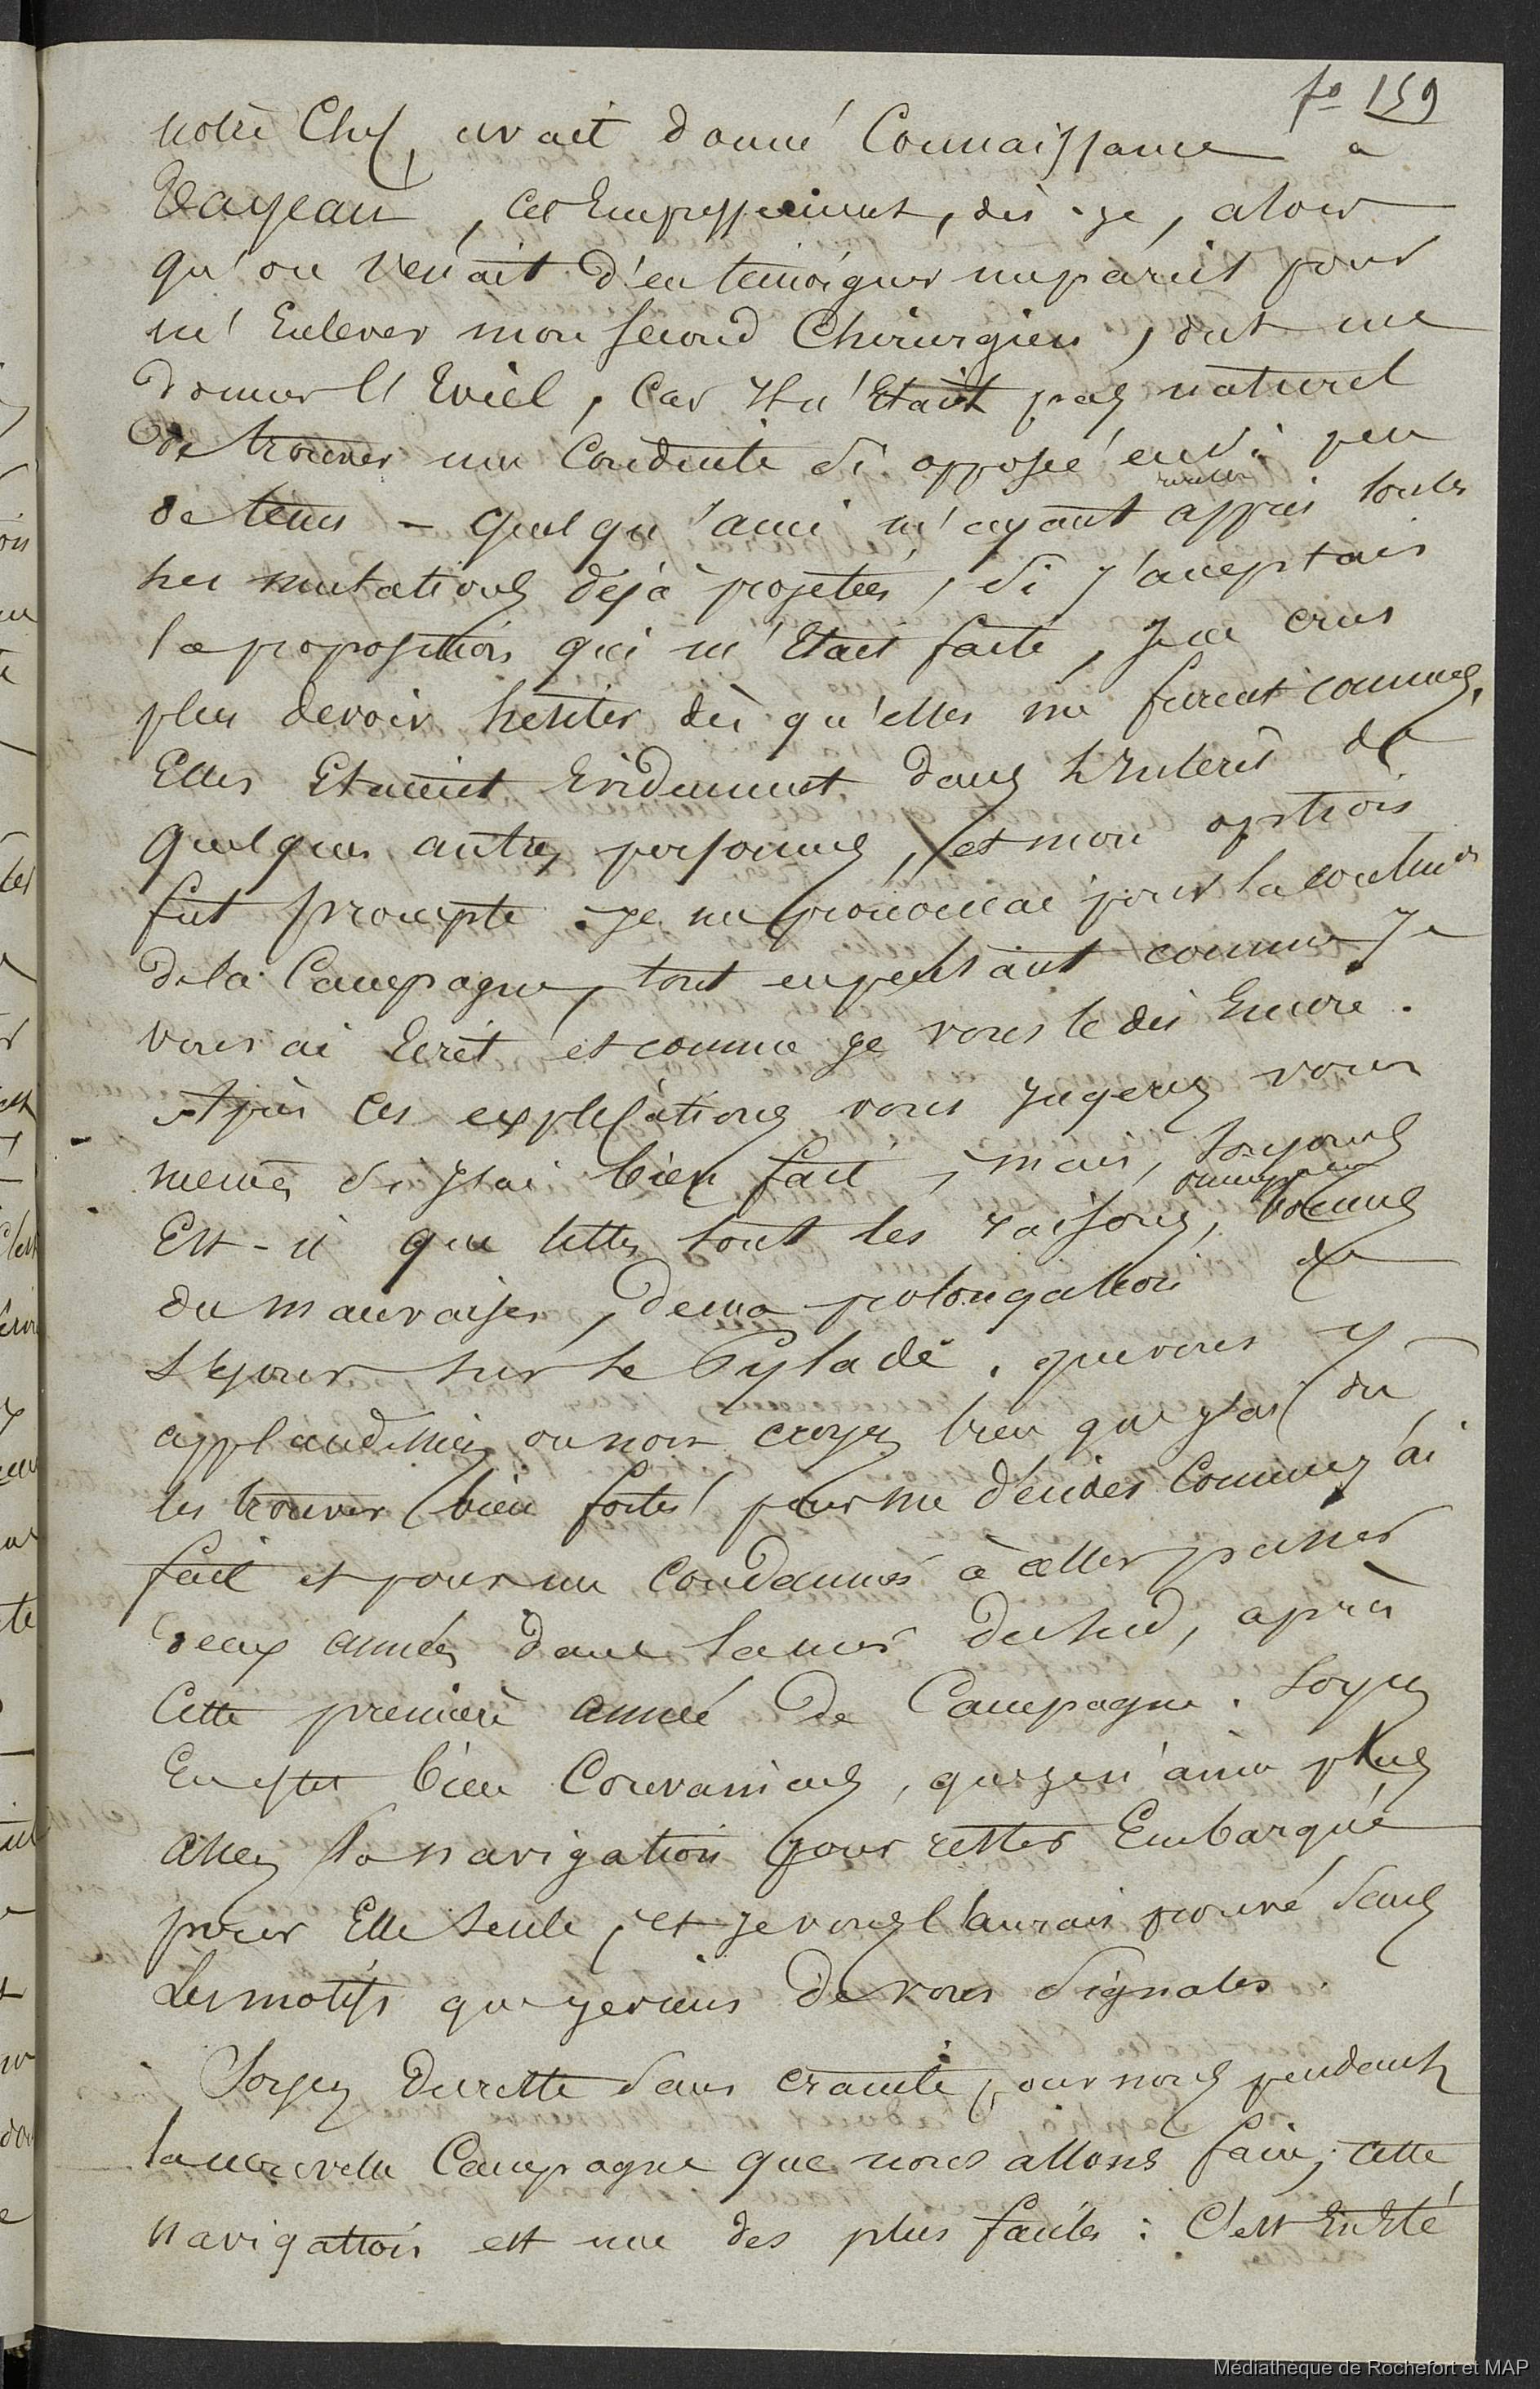 fo 159
notre Chef, avait donné Connaissance à
, cet Empressement, dis-je, alors
qu'on venait d'en temoigner un pareil pour
m'Enlever mon second Chirurgien, dut me
donner l'Eveil, Car Il n'Etait pas naturel
de trouver une Conduite si opposée en si peu
de tems - quelqu'ami m'ayant appris toutes
les mutations déjà projetées, si j'acceptais
la proposition qui m'Etait faite, Je ne crus
plus devoir hesiter dès qu'elles me furent connues,
Elles Etaient Evidemment dans l'Interêt de
quelques autres personnes, et mon option
fut prompte. Je me prononcai pour la contin on
de la Campagne, tout en pestant comme Je
vous ai Ecrit et comme je vous le dis Encore.
Après ces explications vous jugerez vous
memes si j'ai bien fait, mais, toujours
Est-il que telles sont les raisons, bonnes
ou mauvaises, de ma prolongation de
sejour sur le Pylade. que vous y
applaudissiez ou non croyez bien que j'ai du
les trouver bien fortes pour me décider comme j'ai
fait et pour me condamner à aller passer
deux années dans la mer du sud, après
Cette première année de Campagne. Soyez
En effet bien Convaincus, que je n'aime plus
assez la navigation pour rester Embarqué
pour Elle seule, et je vous l'aurais prouvé sans
Les motifs que je viens de vous signaler.
Soyez du reste sans crainte pour nous pendant
la nouvelle Campagne que nous allons faire; cette
navigation est une des plus faciles: C'est En Eté
Médiathèque de Rochefort et MAP